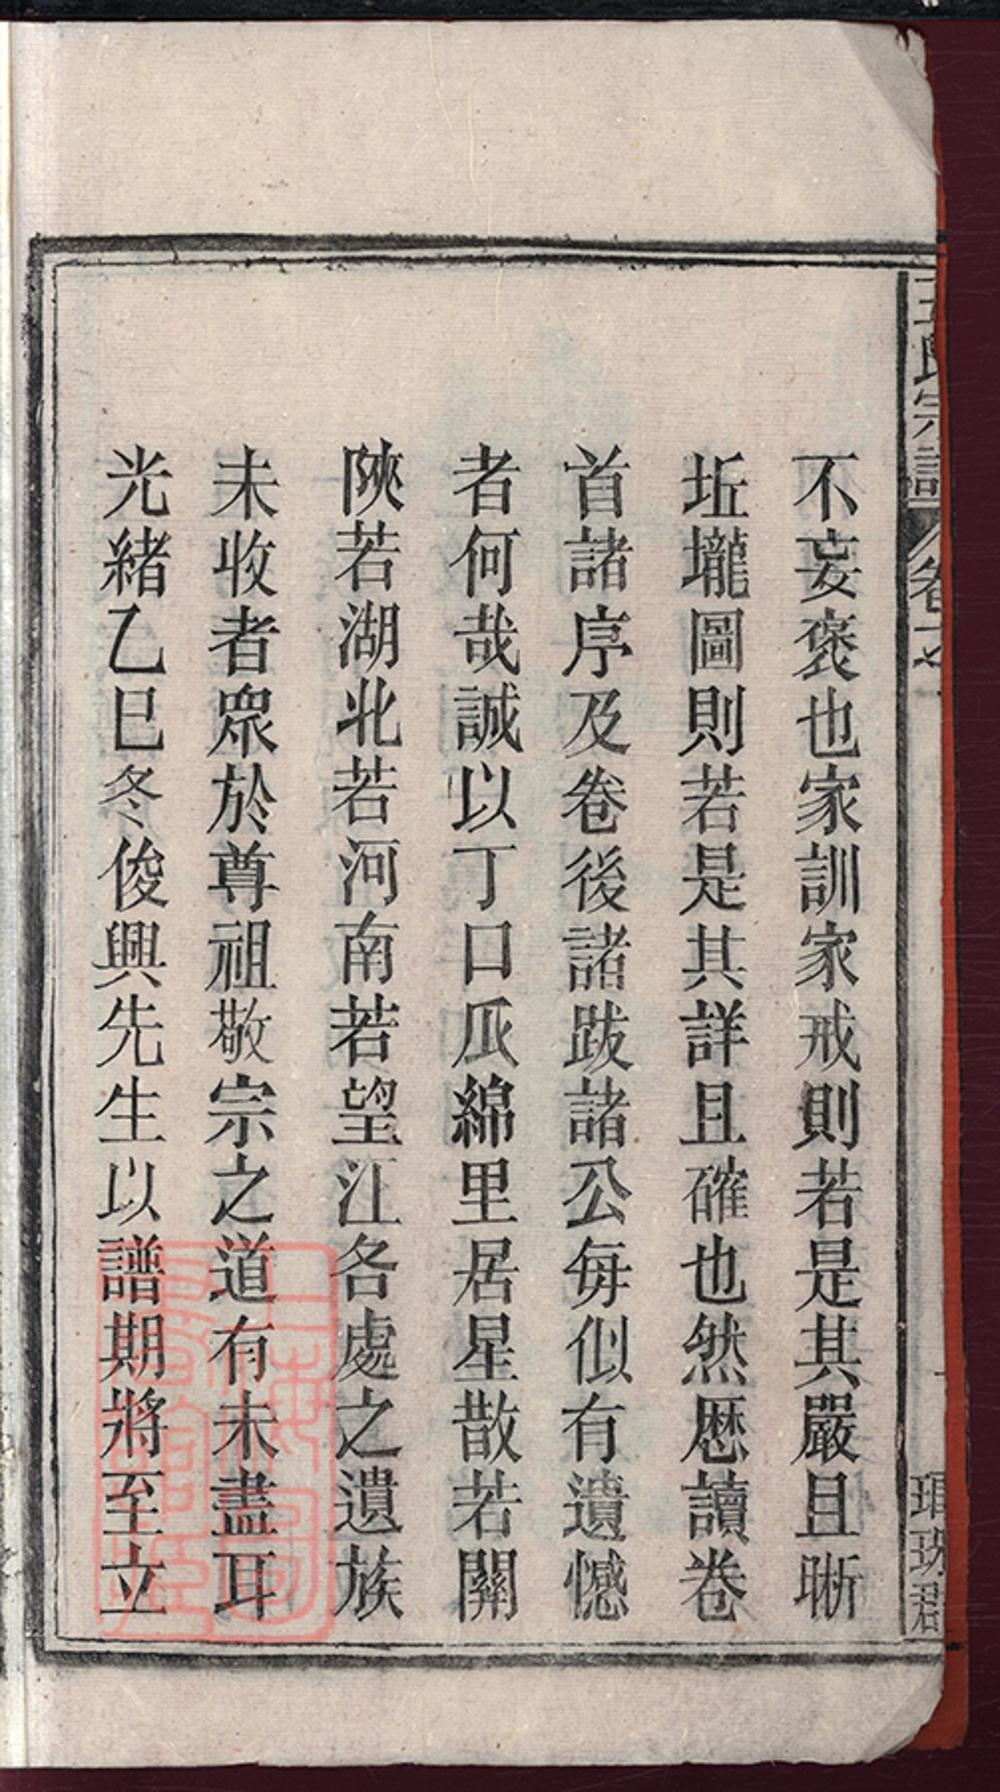 王氏宗譜 卷之
琅玡君
不妄褒也家訓家戒則若是其嚴且晰
坵壠圖則若是其詳且確也然歴讀卷
首諸序及卷後諸跋諸公每似有遺憾
者何哉誠以丁口瓜綿里居星散若關
陝若湖北若河南若望江各處之遺族
未收者眾於尊祖敬宗之道有未盡耳
光緒乙巳冬俊興先生以譜期將至立